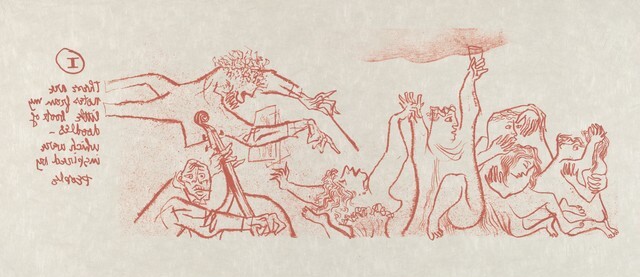 I
These are
notes from my
little book of
doodles -
which were
inspired by
People